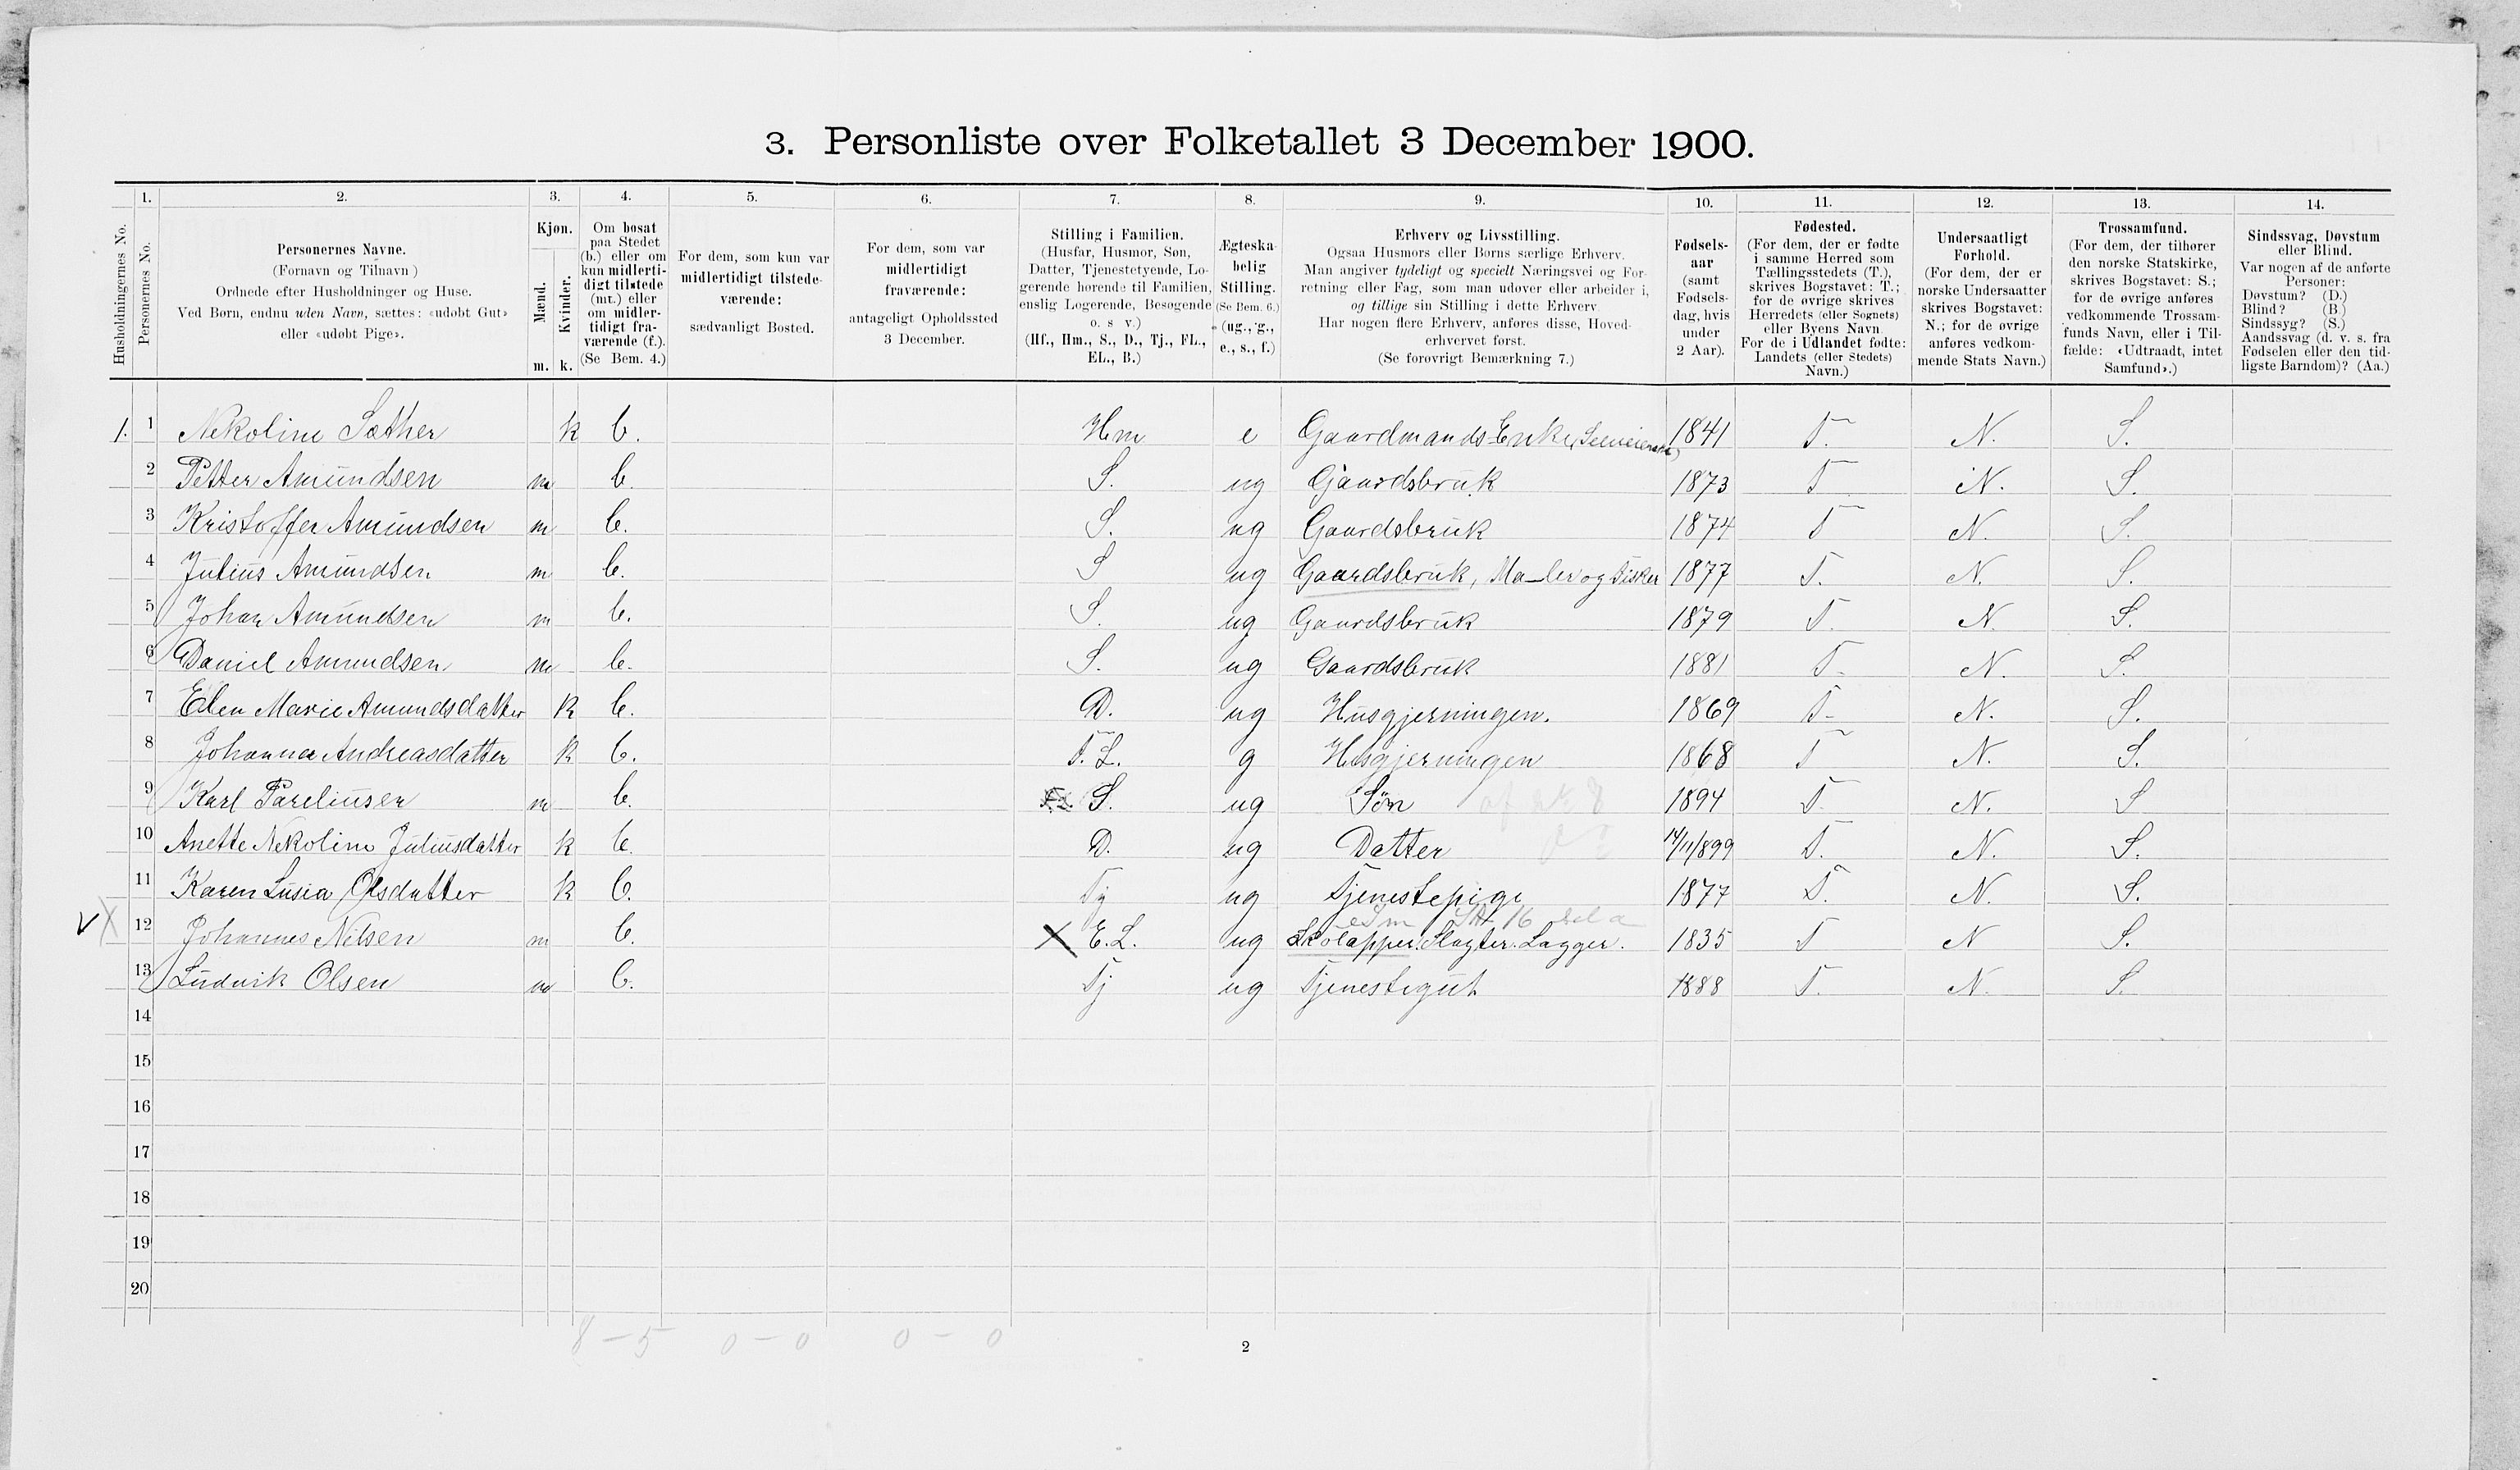 3. Personliste over Folketallet 3 December 1900.
Husholdningernes No.
1. Personernes No.
2. Personernes Navne. (Fornavn og Tilnavn) Ordnede efter Husholdninger og Huse. Ved Børn, endnu uden Navn, sættes: «udøbt Gut» eller «udøbt Pige».
3. Kjøn. Mænd. m. Kvinder. k.
4. Om bosat paa Stedet (b.) eller om kun midlertidigt tilstede (mt.) eller om midlertidigt fraværende (f.). (Se Bem. 4.)
5. For dem, som kun var midlertidigt tilstedeværende: sædvanligt Bosted.
6. For dem, som var midlertidigt fraværende: antageligt Opholdssted 3 December.
7. Stilling i Familien. (Husfar, Husmor, Søn, Datter, Tjenestetyende, Logerende hørende til Familien, enslig Logerende, Besøgende o. s v.) (Hf., Hm., S., D., Tj., FL., EL., B.)
8. Ægteskabelig Stilling. (Se Bem. 6.) (ug., g., e., s., f.)
9. Erhverv og Livsstilling. Ogsaa Husmors eller Børns særlige Erhverv. Man angiver tydeligt og specielt Næringsvei og Forretning eller Fag, som man udøver eller arbeider i, og tillige sin Stilling i dette Erhverv. Har nogen flere Erhverv, anføres disse, Hovederhvervet først. (Se forøvrigt Bemærkning 7.)
10. Fødselsaar (samt Fødselsdag, hvis under 2 Aar).
11. Fødested. (For dem, der er fødte i samme Herred som Tællingsstedets (T.), skrives Bogstavet: T.; for de øvrige skrives Herredets (eller Sognets) eller Byens Navn. For de i Udlandet fødte: Landets (eller Stedets) Navn.)
12. Undersaatligt Forhold. (For dem, der er norske Undersaatter skrives Bogstavet: N.; for de øvrige anføres vedkommende Stats Navn.)
13. Trossamfund. (For dem, der tilhører den norske Statskirke, skrives Bogstavet: S.; for de øvrige anføres vedkommende Trossamfunds Navn, eller i Tilfælde: «Udtraadt, intet Samfund».)
14. Sindssvag, Døvstum eller Blind. Var nogen af de anførte Personer: Døvstum? (D.) Blind? (B.) Sindssyg? (S.) Aandssvag (d. v. s. fra Fødselen eller den tidligste Barndom)? (Aa.)
1. 1 Nekoline Sæther k b. Hm e Gaardmands Enke (Selveiende) 1841 T. N. S.
2 Petter Amundsen m b. S. ug Gaardsbruk 1873 T N. S.
3 Kristoffer Amundsen m b. S. ug Gaardsbruk 1874 T N. S.
4 Julius Amundsen m b. S ug Gaardsbruk, Maler og Fisker 1877 T. N. S.
5 Johan Amundsen m b. S. ug Gaardsbruk 1879 T. N. S.
6 Daniel Amundsen m b. S. ug Gaardsbruk 1881 T. N. S.
7 Elen Marie Amundsdatter k b. D. ug Husgjerningen. 1869 T. N. S.
8 Johanna Andreasdatter k b. F. L. g Husgjerningen 1868 T N. S.
9 Karl Pareliusen m b. S. ug Søn af No 8 1894 T. N. S
10 Anette Nekoline Juliusdatter k b. D. ug Datter 14/11/899 T. N. S.
11 Karen Lusia Olsdatter k b. Tj ug Tjenestepige 1877 T. N. S.
12 Johannes Nilsen m b. X E.L. ug Skolapper. Slagter. Lægger. 1835 T N S.
13 Ludvik Olsen m b. Tj ug Tjenestegut 1888 T. N. S.
14
15
16
17
18
19
20
8 - 5 0 - 0 0 - 0
2